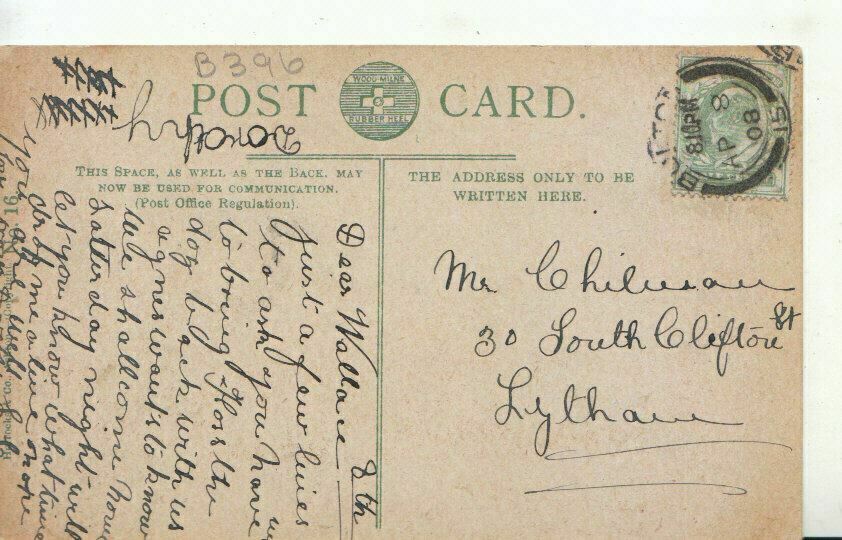 B396
POST CARD.
WOOD-MILNE
RUBBER HEEL
THIS SPACE, AS WELL AS THE BACK, MAY
NOW BE USED FOR COMMUNICATION.
(Post Office Regulation).
THE ADDRESS ONLY TO BE
WRITTEN HERE.
810PM
AP 8
08
15
Mr Chilman
30 South Clifton St
Lytham
8th
Dear Wallace
Just a few lines
to ask you have
to bring Floss the
dog back with us
agnes wants to know
we shall come home
Saturday night will
let you know what time
drop me a line hope
you are well
Dorothy
No. 16.